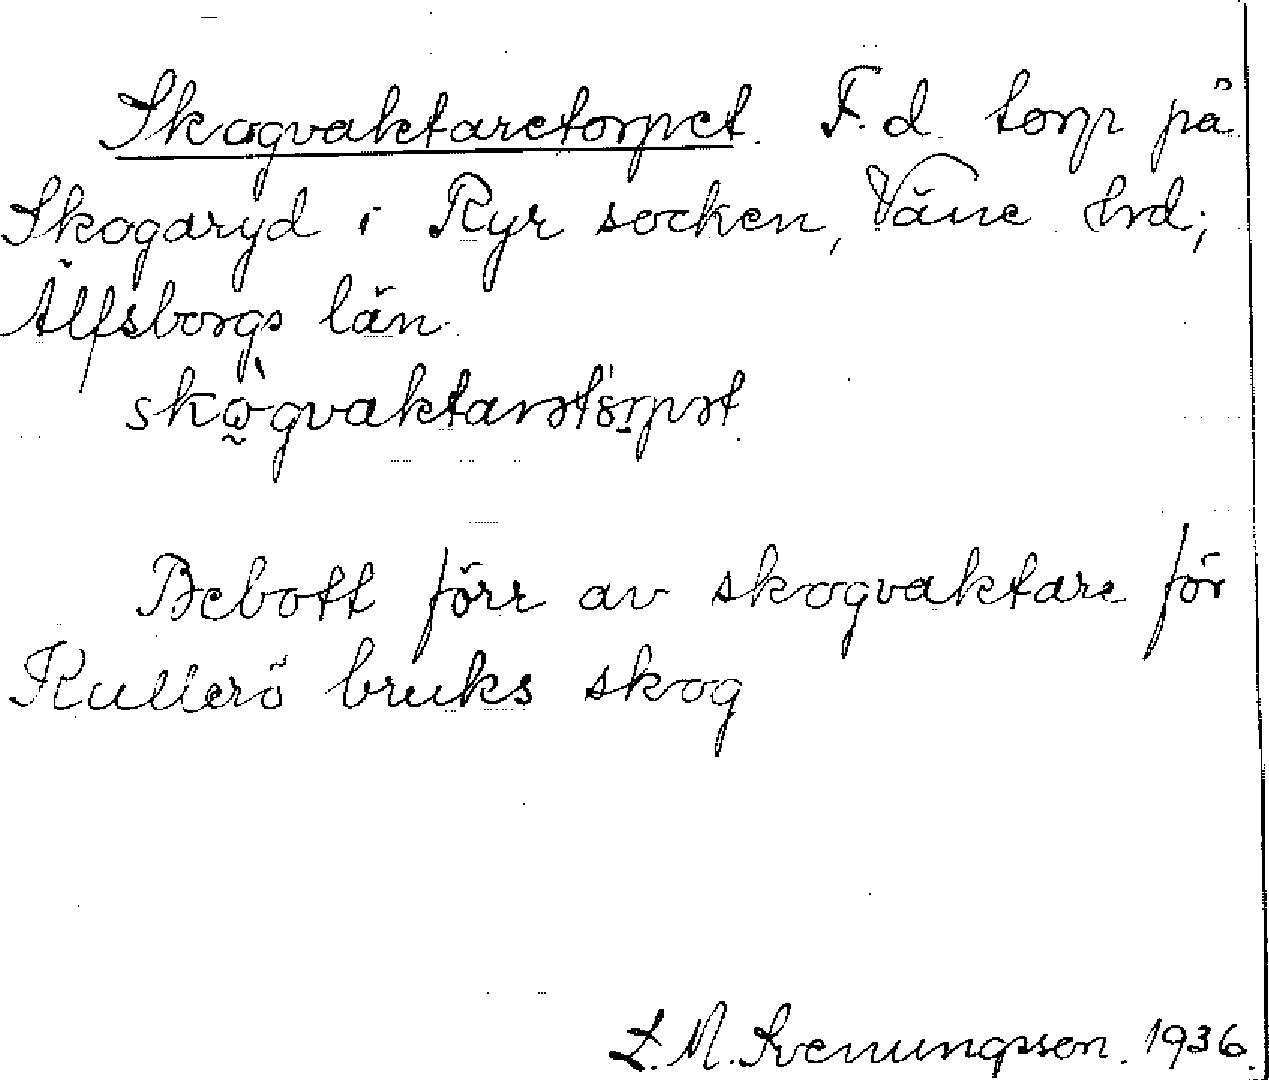 Skogvaktaretorpet. F.d. torp på
Skogaryd i Ryr socken, Väne hrd,
Älfsborgs län.
skògvaktarətörpət
Bebott förr av skogvaktare för
Kullerö bruks skog
L. M. Svenungsson. 1936.